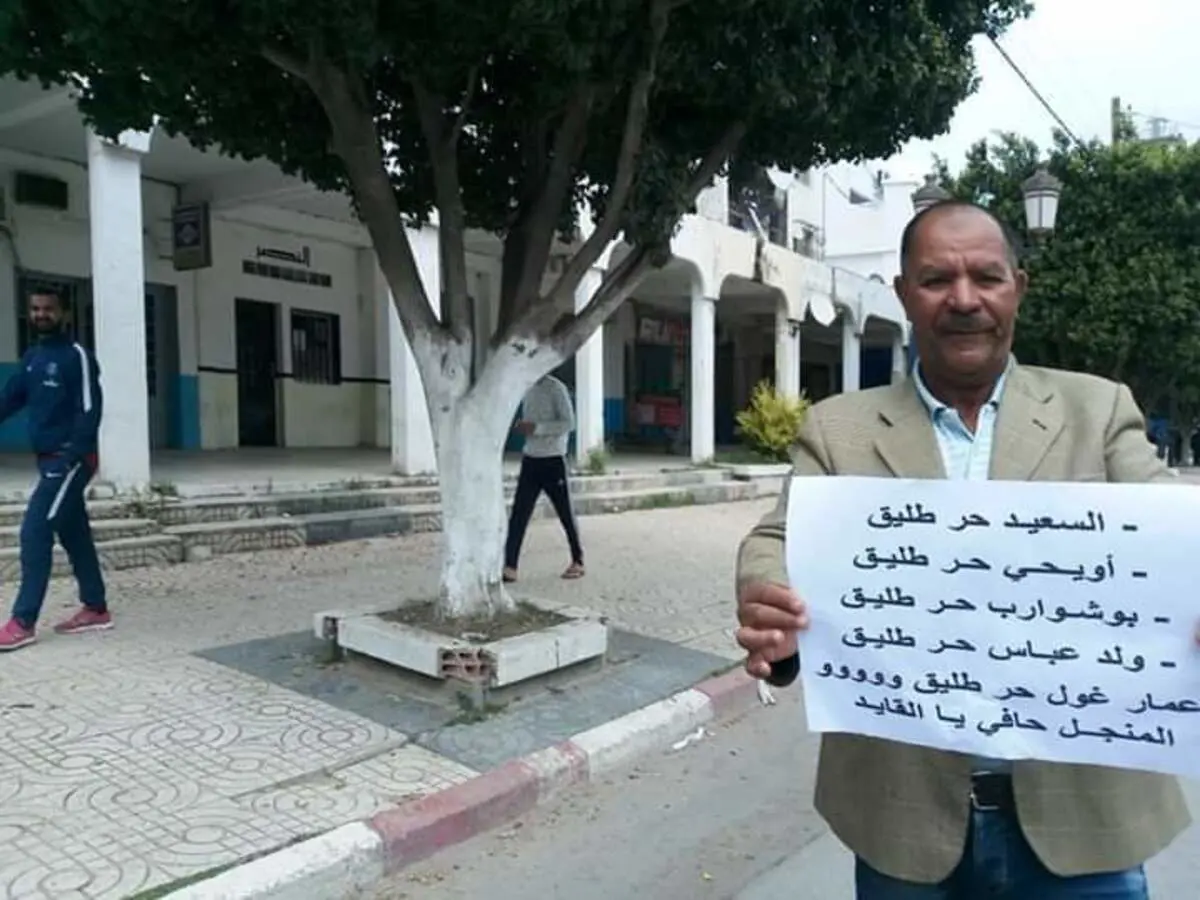 النصر
- السعيد حر طليق
- أويحي حر طليق
- بوشوارب حر طليق
- ولد عباس حر طليق
عمار غول حر طليق ووووو
المنجل حافي يا القايد